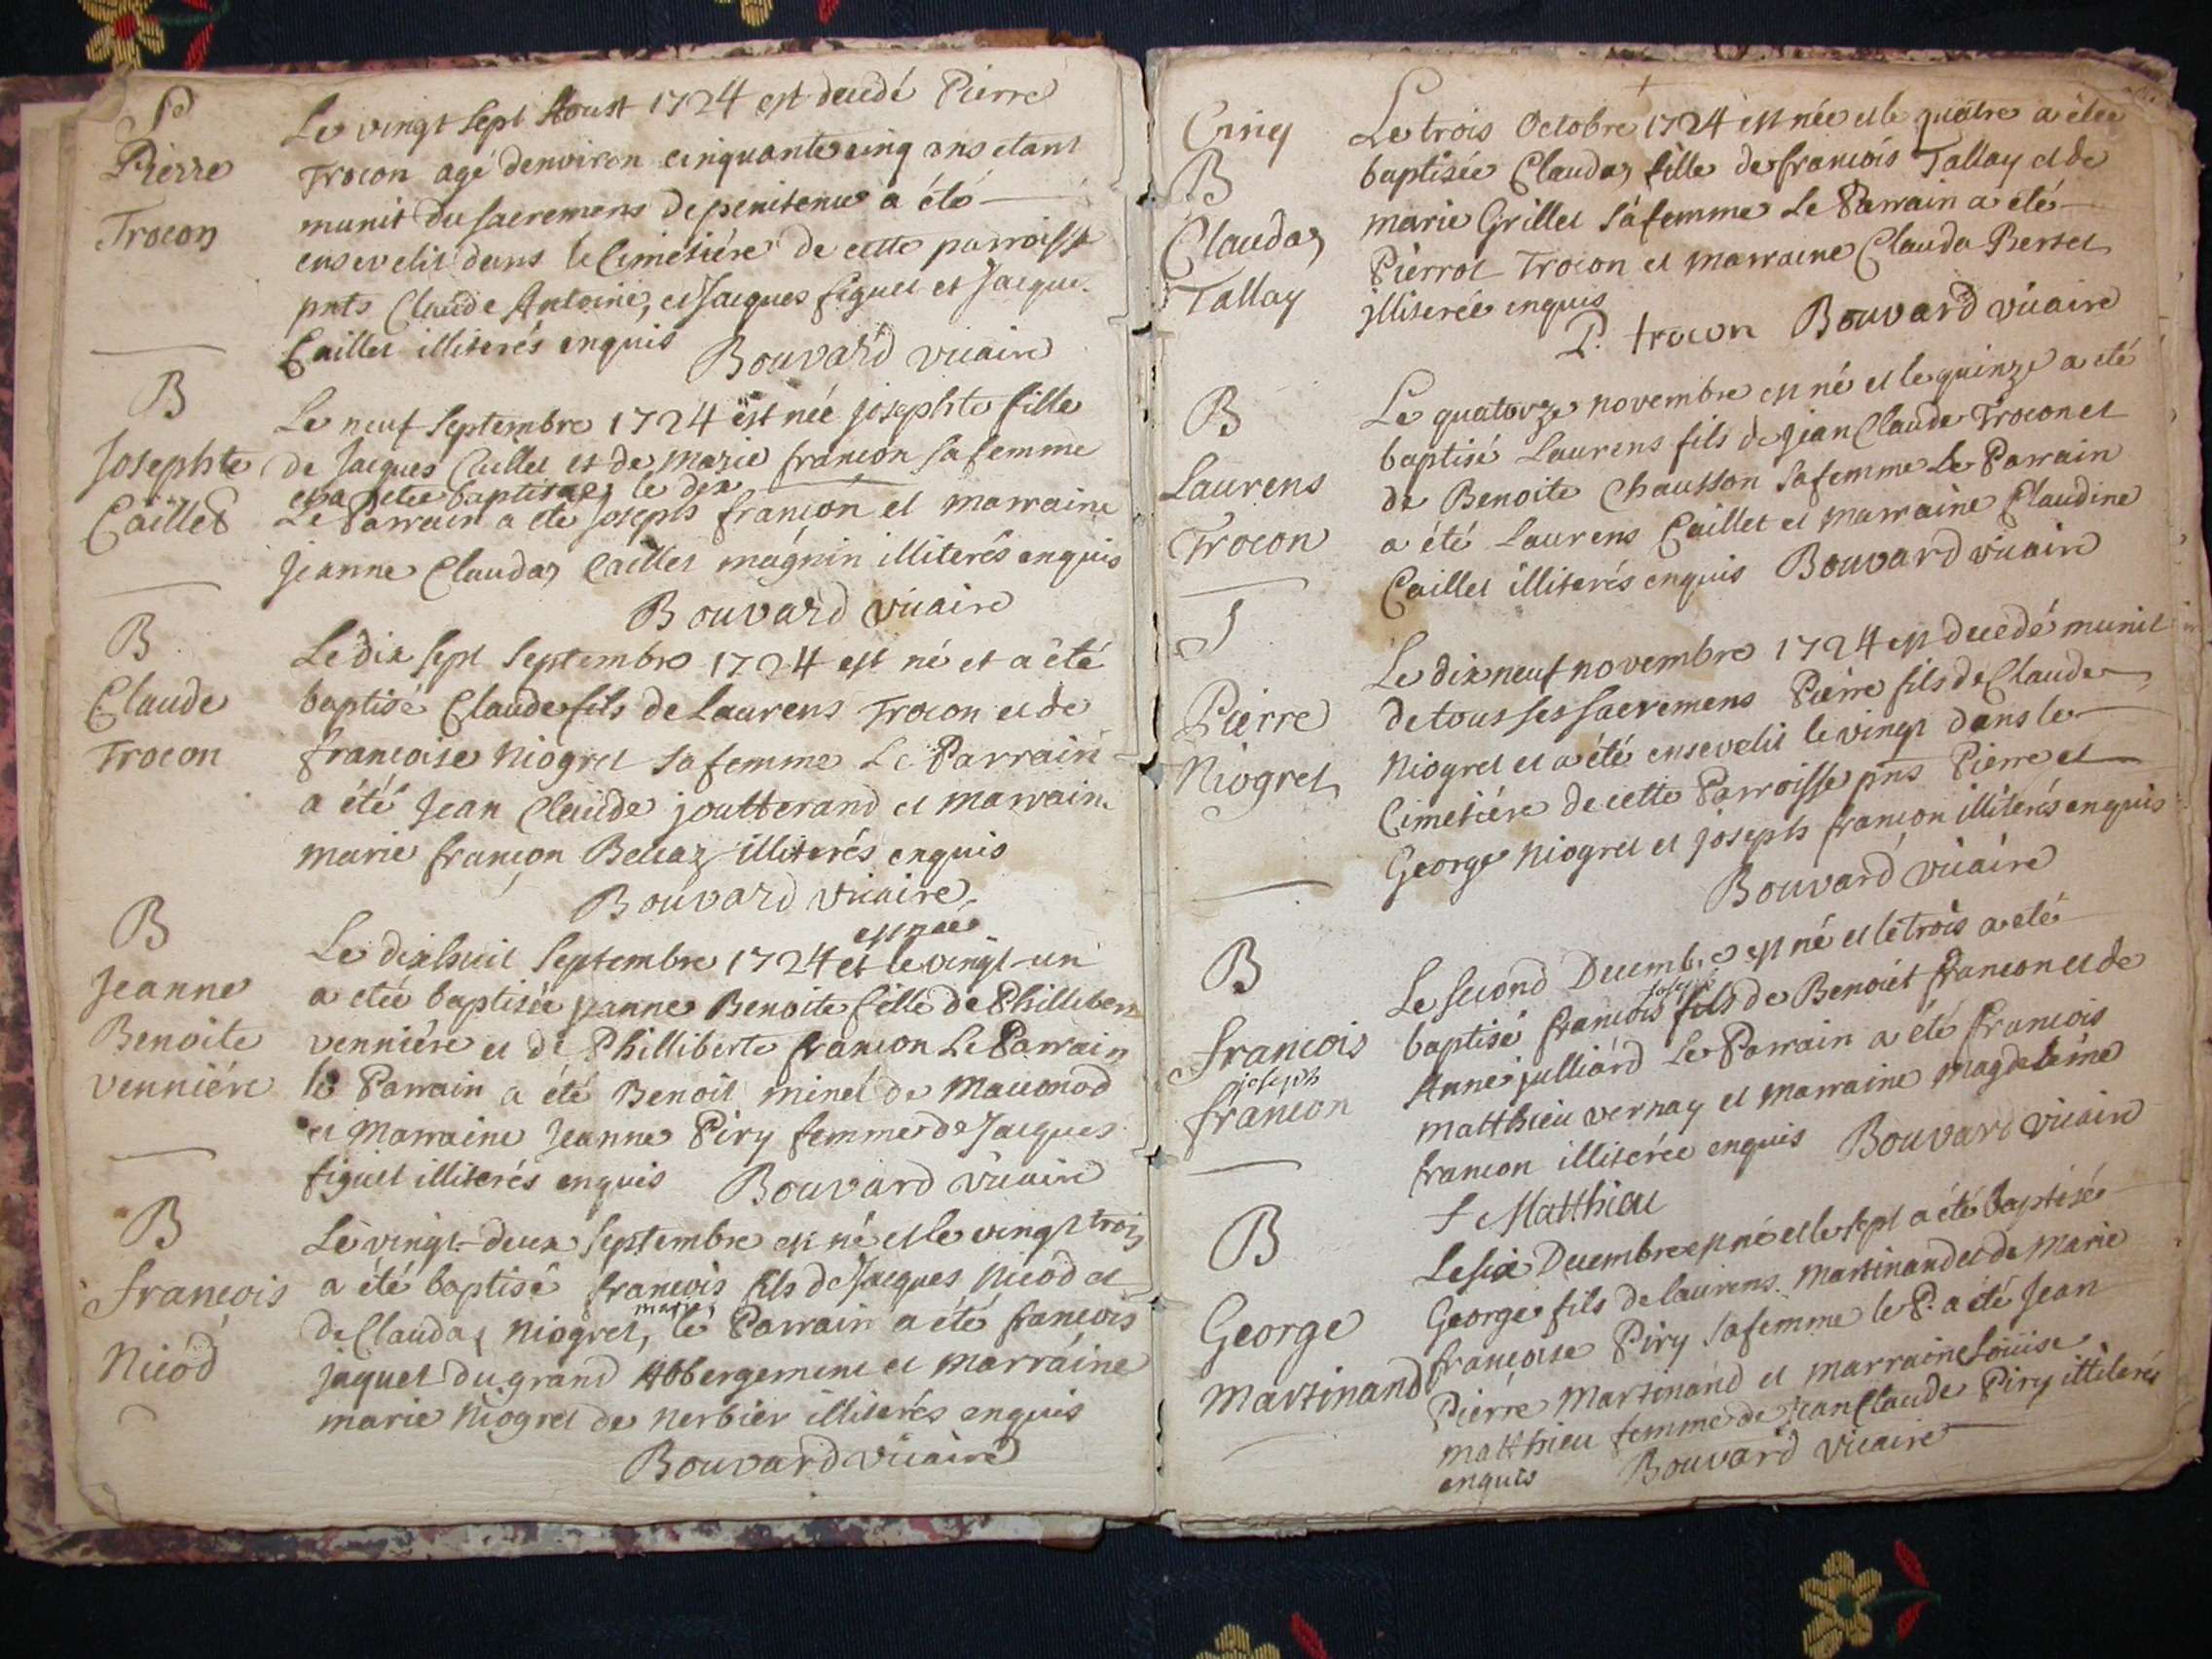 S
Pierre
Trocon
Le vingt sept Aoust 1724 est decedé Pierre
Trocon agé denviron cinquante cinq ans etant
munit du sacremens de penitence a été
ensevelit dans le Cimetiére de cette parroisse
pnts Claude Antoine, et Jacques figuet et Jacque
Caillet illiterés enquis
Bouvard vicaire
B
Josephte
Caillet
Le neuf Septembre 1724 est née josephte fille
de Jacques Caillet et de Marie francon sa femme
et a etée baptisée le dix
Le Parrain a ete Joseph francon et marraine
Jeanne Clauda Caillet magnin illiterés enquis
Bouvard vicaire
B
Claude
Trocon
Le dix sept Septembre 1724 est né et a été
baptisé Claude fils de Laurens Trocon et de
françoise Niogret sa femme Le Parrain
a été Jean Claude joutterand et marraine
marie francon Beccaz illiterés enquis
Bouvard vicaire
B
Jeanne
Benoite
venniére
est née
Le dixhuit Septembre 1724 et le vingt-un
a etée baptisée jeanne Benoite fille de Phillibert
venniére et de Philliberte francon Le Parrain
le Parrain a été Benoit minet de Maconod
et Marraine Jeanne Piry femme de Jacques
figuet illiterés enquis Bouvard vicaire
B
francois
Nicod
Le vingt-deux Septembre est né et le vingt trois
a été baptisé francois fils de Jacques Nicod et
marie
de Clauda Niogret, le Parrain a été francois
jaquet du grand Abbergement et marraine
marie Niogret de nerbier illiterés enquis
Bouvard vicaire
Cinq
B
Clauda
Tallay
Le trois Octobre 1724 est née et le quatre a étée
baptisée Clauda fille de francois Tallay et de
marie Grillet sa femme Le Parrain a été
Pierrot Trocon et marraine Clauda Berset
illiterée enquis
P. trocon Bouvard vicaire
B
Laurens
Trocon
Le quatorze novembre est né et le quinze a eté
baptisé Laurens fils de jean Claude Trocon et
de Benoite Chausson sa femme Le Parrain
a été Laurens Caillet et marraine Claudine
Caillet illiterés enquis Bouvard vicaire
S
Pierre
Niogret
Le dix neuf novembre 1724 est decedé munit
de tous ses sacremens Pierre fils de Claude
Niogret et a été ensevelit le vingt dans le
Cimetiére de cette Parroisse pns Pierre et
George Niogret et joseph francon illiterés enquis
Bouvard vicaire
B
francois
joseph
francon
Le second Decembre est né et le trois a eté
joseph
baptisé francois fils de Benoiet francon et de
Anne julliard Le Parrain a été francois
matthieu vernay et marraine magdeleine
francon illiterée enquis Bouvard vicaire
f Matthieu
B
George
Martinand
Le six Decembre est né et le sept a été baptisé
George fils de laurens Martinand et de Marie
françoise Piry sa femme le P. a été Jean
Pierre Martinand et marraine Loüise
matthieu femme de jean Claude Piry illiterés
enquis Bouvard vicaire